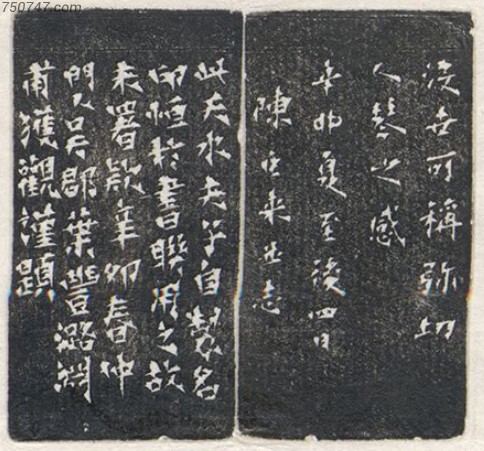 750747.com
没世可稱弥切
人琴之感
辛卯夏至後四日
陳巨来并志
此夫子自製名
印恒於書聯用之故
未署款辛卯春仲
門人吳郡葉豐潞淵
甫獲觀謹題